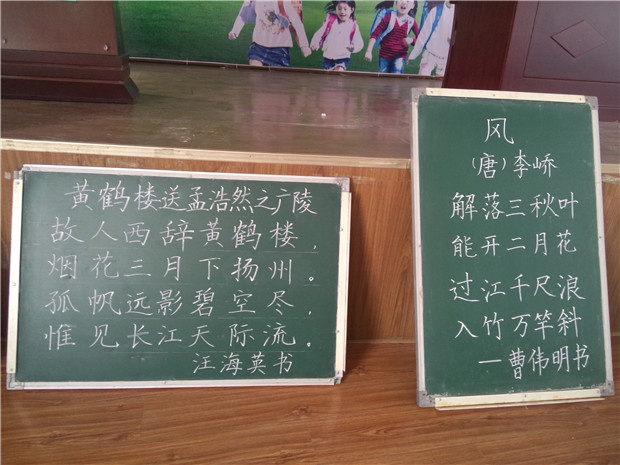 黄鹤楼送孟浩然之广陵
故人西辞黄鹤楼，
烟花三月下扬州。
孤帆远影碧空尽，
惟见长江天际流。
汪海英书
风
（唐）李峤
解落三秋叶
能开二月花
过江千尺浪
入竹万竿斜
—曹伟明书